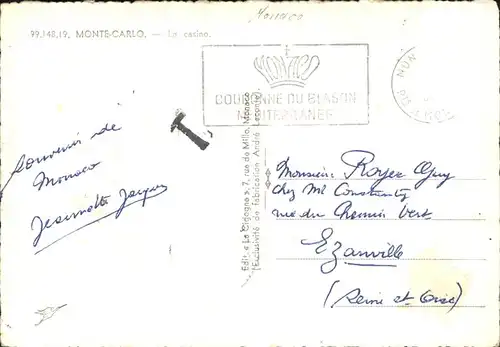 Monaco
99.148.19. MONTE-CARLO. — Le casino.
MONACO
COURONNE DU BLASON
MEDITERRANEE
T
Souvenir de
Monaco
Jeannette Jacques
Edit. « La Cigogne », 7, rue de Millo, Monaco
(Exclusivité de fabrication André Leconte).
Monsieur Roger
chez Mr
rue du Chemin Vert
Ezanville
(Seine et Oise)